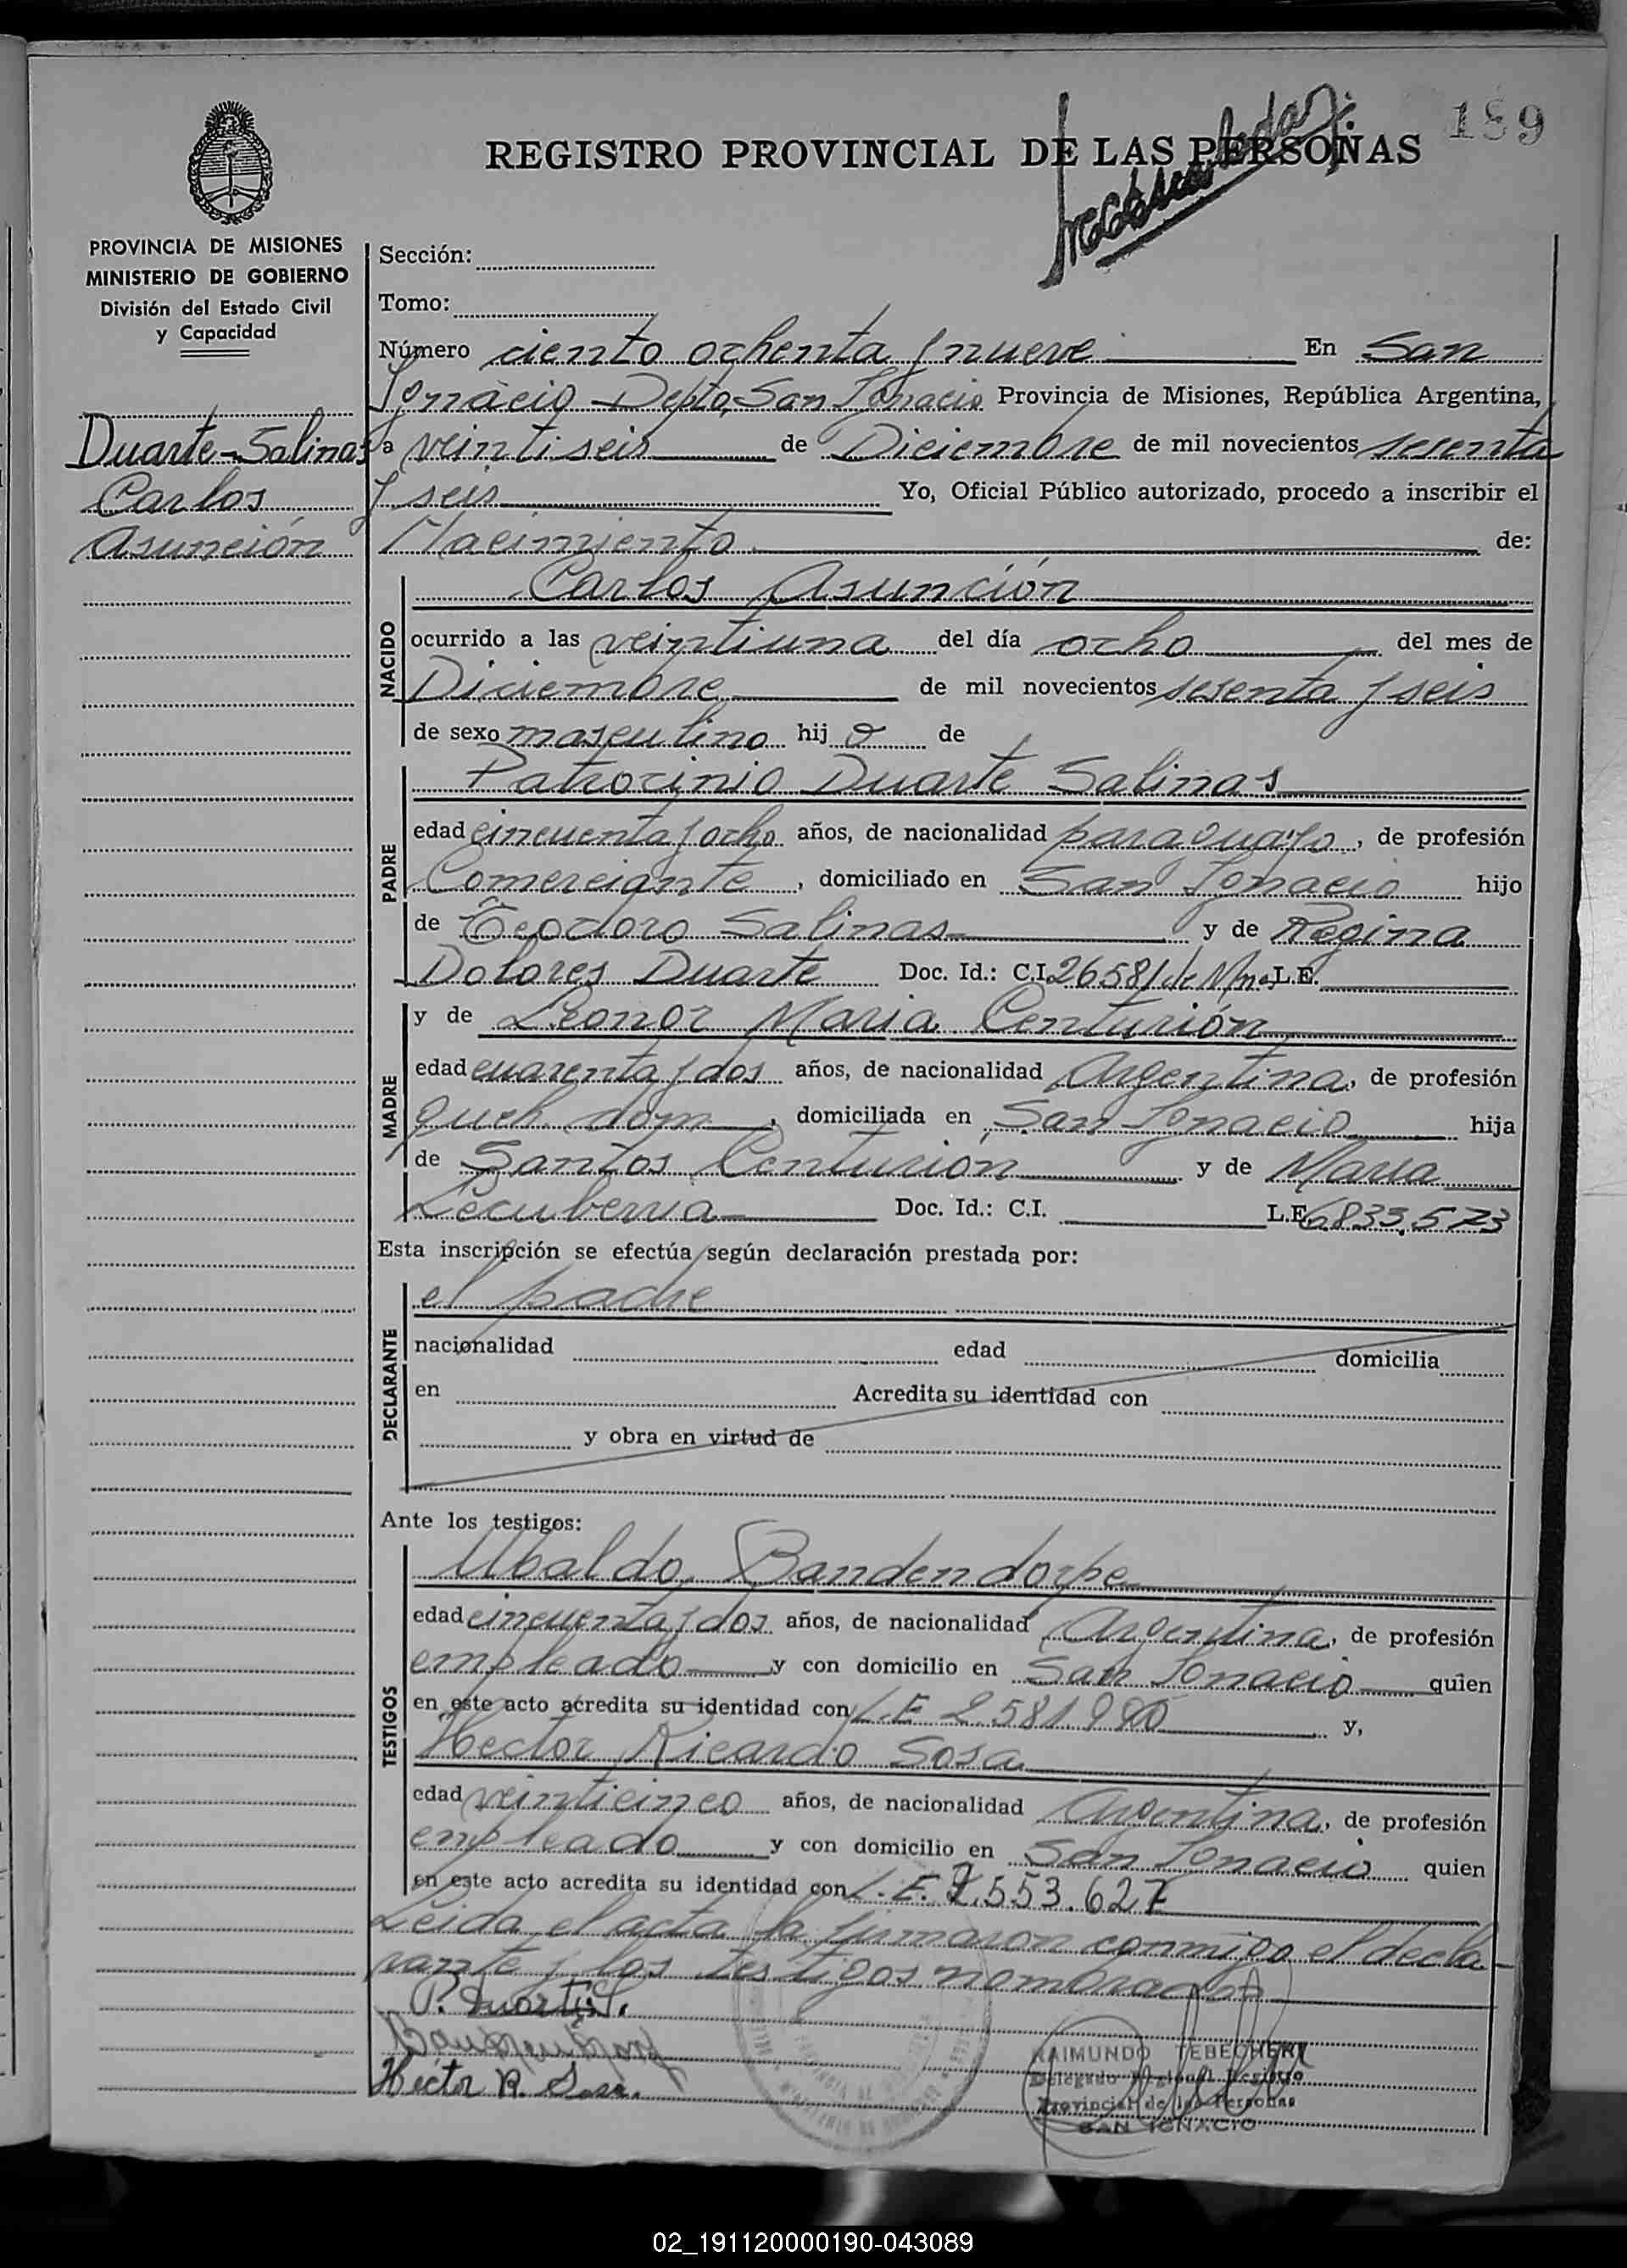 189
REGISTRO PROVINCIAL DE LAS PERSONAS
PROVINCIA DE MISIONES
MINISTERIO DE GOBIERNO
División del Estado Civil
y Capacidad
Duarte-Salinas
Carlos
Asunción
Sección:
Tomo:
Número ciento ochenta y nueve En San
Ignacio - Depto. San Ignacio Provincia de Misiones, República Argentina,
a veintiseis de Diciembre de mil novecientos sesenta
y seis Yo, Oficial Público autorizado, procedo a inscribir el
Nacimiento de:
NACIDO
Carlos Asunción
ocurrido a las veintiuna del día ocho del mes de
Diciembre de mil novecientos sesenta y seis
de sexo masculino hij o de
PADRE
Patrocinio Duarte Salinas
edad cincuenta y ocho años, de nacionalidad paraguayo, de profesión
Comerciante, domiciliado en San Ignacio hijo
de Teodoro Salinas y de Regina
Dolores Duarte Doc. Id.: C.I. 26581 de Mnes L.E.
MADRE
y de Leonor Maria Centurión
edad cuarenta y dos años, de nacionalidad Argentina, de profesión
queh. dom, domiciliada en San Ignacio hija
de Santos Centurión y de Maria
Lecuberria Doc. Id.: C.I. L.E. 6833.573
Esta inscripción se efectúa según declaración prestada por:
DECLARANTE
el padre
nacionalidad edad domicilia
en Acredita su identidad con
y obra en virtud de
Ante los testigos:
TESTIGOS
Ubaldo Bandendorpe
edad cincuenta y dos años, de nacionalidad Argentina, de profesión
empleado y con domicilio en San Ignacio quien
en este acto acredita su identidad con L.E. 2.581.990 y,
Hector Ricardo Sosa
edad veinticinco años, de nacionalidad Argentina, de profesión
empleado y con domicilio en San Ignacio quien
en este acto acredita su identidad con L.E. 7.553.627
Leida el acta la firmaron conmigo el decla-
rante y los testigos nombrados
P. Duarte S.
Hector R. Sosa.
RAIMUNDO TEBECHERI
Delegado Regional Registro
Provincial de las Personas
SAN IGNACIO
02_191120000190-043089